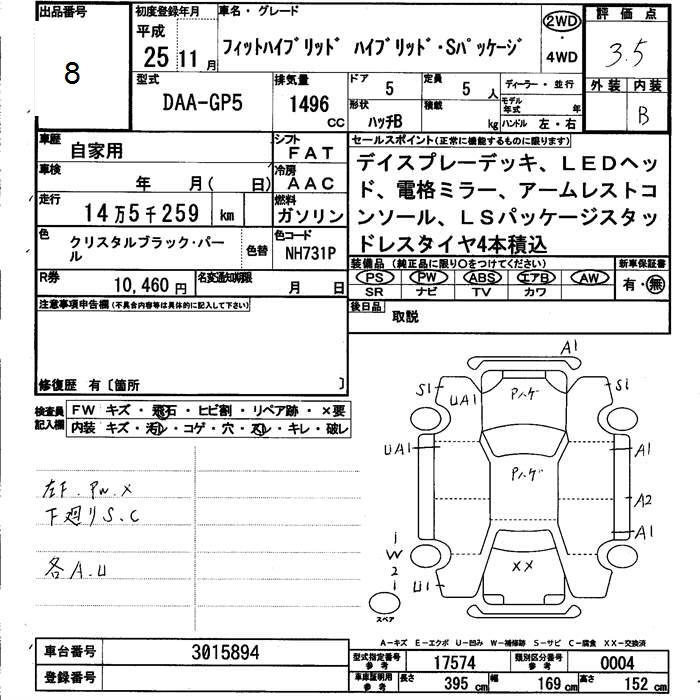 出品番号 初度登録年月 車名・グレード 2WD 評価点
8 平成 25年 11月 フィットハイブリッド ハイブリッド・Sパッケージ 4WD 3.5
型式 排気量 ドア 定員 ディーラー・並行 外装 内装
DAA-GP5 1496 CC 5 5人 モデル年式 年 B
形状 ハッチB 積載 kg ハンドル 左・右
車歴 自家用 シフト FAT セールスポイント(正常に機能するものに限ります)
車検 年 月( 日) 冷房 AAC
走行 14万5千259 km 燃料 ガソリン
デイスプレーデッキ、LEDヘッ
ド、電格ミラー、アームレストコ
ンソール、LSパッケージスタッ
ドレスタイヤ4本積込
色 クリスタルブラック・パー
ル 色替 色コード NH731P
装備品 (純正品に限り〇をつけてください) 新車保証書
PS PW ABS エアB AW 有・無
SR ナビ TV カワ
R券 10,460円 名変通知期限 月 日
後日品 取説
注意事項申告欄(不具合内容等は具体的に記入して下さい)
修復歴 有〔箇所 〕
検査員記入欄 FW キズ・飛石・ヒビ割・リペア跡・×要
内装 キズ・汚レ・コゲ・穴・スレ・キレ・破レ
左F.PW.X
下廻りS.C
各A.U
A1
S1 UA1 Pハゲ S1
UA1 Pハゲ A1
A2
A1
XX
U1
スペア
A-キズ E-エクボ U-凹み W-補修跡 S-サビ C-腐食 XX-交換済
車台番号 3015894 型式指定番号 参考 17574 類別区分番号 参考 0004
登録番号 車庫証明用 参考 長さ 395cm 幅 169cm 高さ 152cm